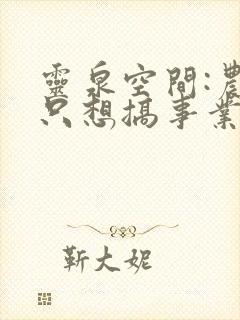 靈泉空間:農
只想搞事業
靳大妮